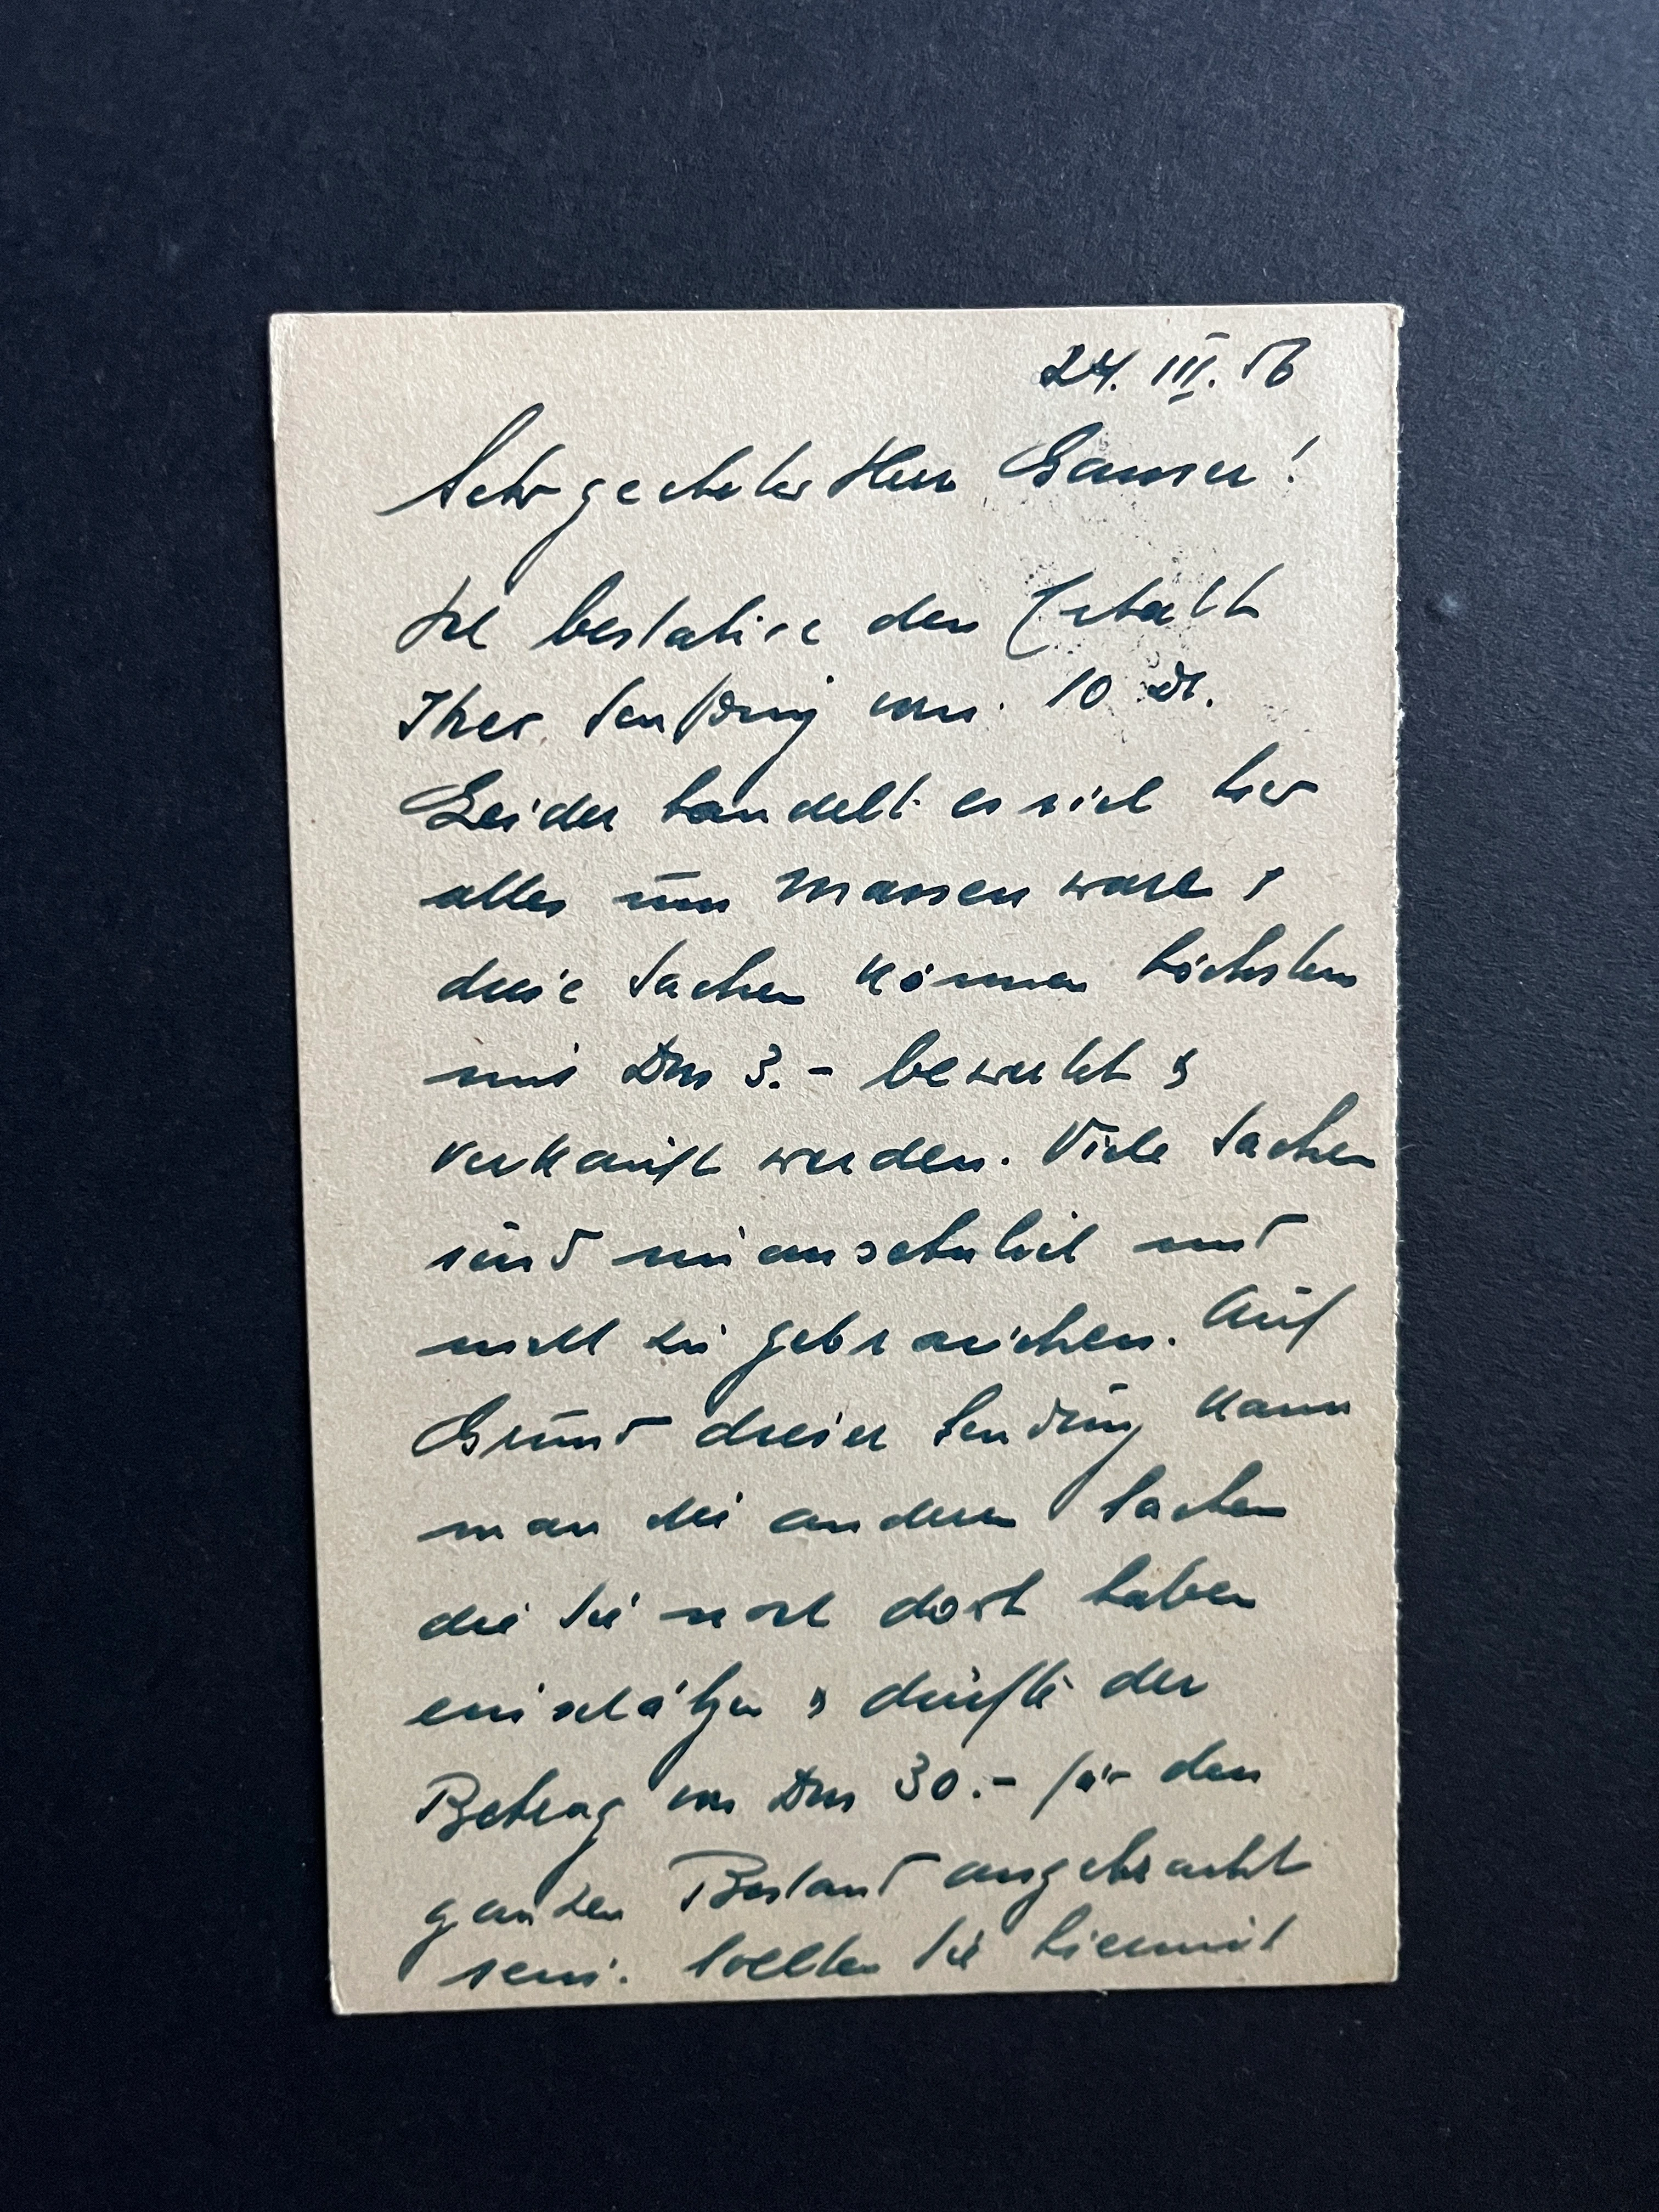 24. III. 56
Sehr geehrter Herr Ganser!
Ich bestätige den Erhalt
Ihrer Sendung vom 10 ds.
Leider handelt es sich hier
alles um Massenware &
diese Sachen können höchstens
mit Dm 3.- bewertet &
verkauft werden. Viele Sachen
sind unansehnlich und
nicht zu gebrauchen. Auf
Grund dieser Sendung kann
man die anderen Sachen
die Sie noch dort haben
einschätzen & dürfte der
Betrag von Dm 30.- für den
ganzen Bestand angebracht
sein. Sollten Sie hiermit